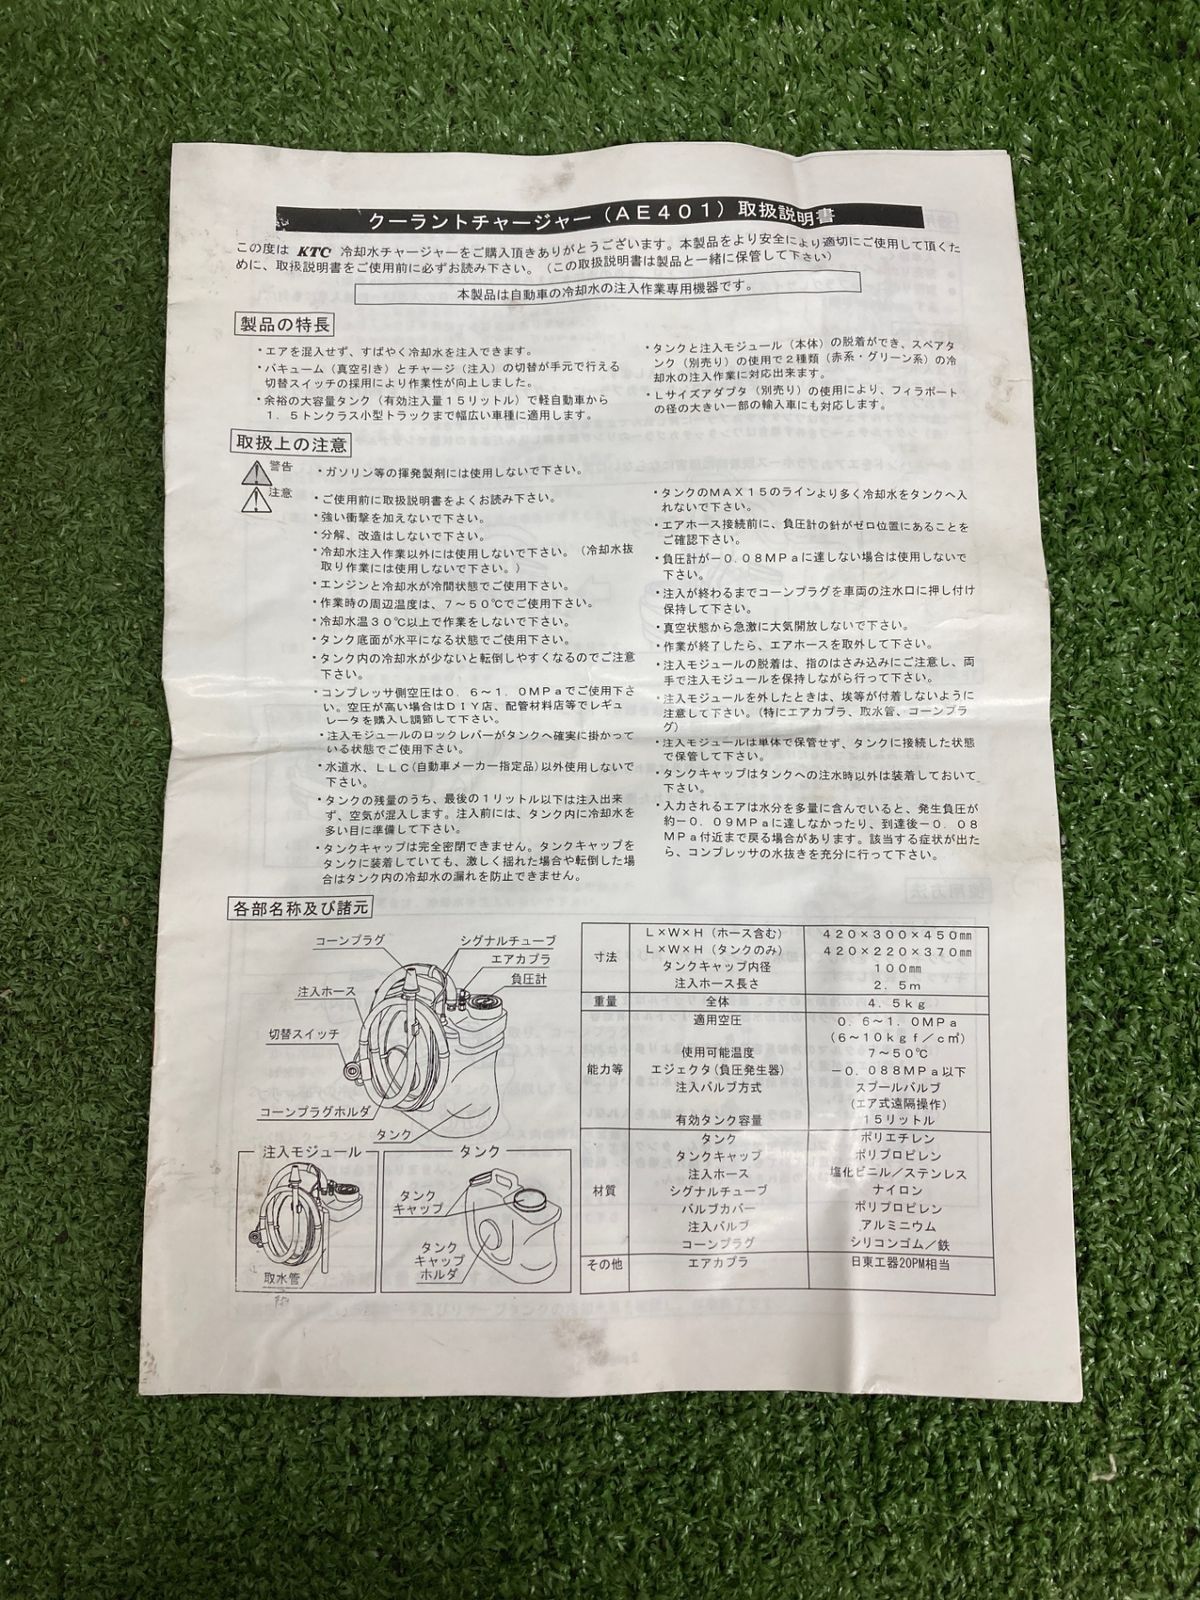 クーラントチャージャー（AE401）取扱説明書
この度は KTC 冷却水チャージャーをご購入頂きありがとうございます。本製品をより安全により適切にご使用して頂くた
めに、取扱説明書をご使用前に必ずお読み下さい。（この取扱説明書は製品と一緒に保管して下さい）
本製品は自動車の冷却水の注入作業専用機器です。
製品の特長
・エアを混入せず、すばやく冷却水を注入できます。
・バキューム（真空引き）とチャージ（注入）の切替が手元で行える
切替スイッチの採用により作業性が向上しました。
・余裕の大容量タンク（有効注入量15リットル）で軽自動車から
1.5トンクラス小型トラックまで幅広い車種に適用します。
・タンクと注入モジュール（本体）の脱着ができ、スペアタ
ンク（別売り）の使用で2種類（赤系・グリーン系）の冷
却水の注入作業に対応出来ます。
・Lサイズアダプタ（別売り）の使用により、フィラポート
の径の大きい一部の輸入車にも対応します。
取扱上の注意
警告
・ガソリン等の揮発製剤には使用しないで下さい。
注意
・ご使用前に取扱説明書をよくお読み下さい。
・強い衝撃を加えないで下さい。
・分解、改造はしないで下さい。
・冷却水注入作業以外には使用しないで下さい。（冷却水抜
取り作業には使用しないで下さい。）
・エンジンと冷却水が冷間状態でご使用下さい。
・作業時の周辺温度は、7～50℃でご使用下さい。
・冷却水温30℃以上で作業をしないで下さい。
・タンク底面が水平になる状態でご使用下さい。
・タンク内の冷却水が少ないと転倒しやすくなるのでご注意
下さい。
・コンプレッサ側空圧は0.6～1.0MPaでご使用下さ
い。空圧が高い場合はDIY店、配管材料店等でレギュ
レータを購入し調節して下さい。
・注入モジュールのロックレバーがタンクへ確実に掛かって
いる状態でご使用下さい。
・水道水、LLC(自動車メーカー指定品)以外使用しないで
下さい。
・タンクの残量のうち、最後の1リットル以下は注入出来
ず、空気が混入します。注入前には、タンク内に冷却水を
多い目に準備して下さい。
・タンクキャップは完全密閉できません。タンクキャップを
タンクに装着していても、激しく揺れた場合や転倒した場
合はタンク内の冷却水の漏れを防止できません。
・タンクのMAX15のラインより多く冷却水をタンクへ入
れないで下さい。
・エアホース接続前に、負圧計の針がゼロ位置にあることを
ご確認下さい。
・負圧計が－0.08MPaに達しない場合は使用しないで
下さい。
・注入が終わるまでコーンプラグを車両の注水口に押し付け
保持して下さい。
・真空状態から急激に大気開放しないで下さい。
・作業が終了したら、エアホースを取外して下さい。
・注入モジュールの脱着は、指のはさみ込みにご注意し、両
手で注入モジュールを保持しながら行って下さい。
・注入モジュールを外したときは、埃等が付着しないように
注意して下さい。（特にエアカプラ、取水管、コーンプラ
グ）
・注入モジュールは単体で保管せず、タンクに接続した状態
で保管して下さい。
・タンクキャップはタンクへの注水時以外は装着しておいて
下さい。
・入力されるエアは水分を多量に含んでいると、発生負圧が
約－0.09MPaに達しなかったり、到達後－0.08
MPa付近まで戻る場合があります。該当する症状が出た
ら、コンプレッサの水抜きを充分に行って下さい。
各部名称及び諸元
コーンプラグ
シグナルチューブ
エアカプラ
負圧計
注入ホース
切替スイッチ
コーンプラグホルダ
タンク
注入モジュール
取水管
タンク
タンク
キャップ
タンク
キャップ
ホルダ
寸法 L×W×H（ホース含む） 420×300×450㎜
L×W×H（タンクのみ） 420×220×370㎜
タンクキャップ内径 100㎜
注入ホース長さ 2.5m
重量 全体 4.5kg
能力等 適用空圧 0.6～1.0MPa
(6～10kgf／c㎡)
使用可能温度 7～50℃
エジェクタ(負圧発生器) －0.088MPa以下
注入バルブ方式 スプールバルブ
(エア式遠隔操作)
有効タンク容量 15リットル
材質 タンク ポリエチレン
タンクキャップ ポリプロピレン
注入ホース 塩化ビニル／ステンレス
シグナルチューブ ナイロン
バルブカバー ポリプロピレン
注入バルブ アルミニウム
コーンプラグ シリコンゴム／鉄
その他 エアカプラ 日東工器20PM相当